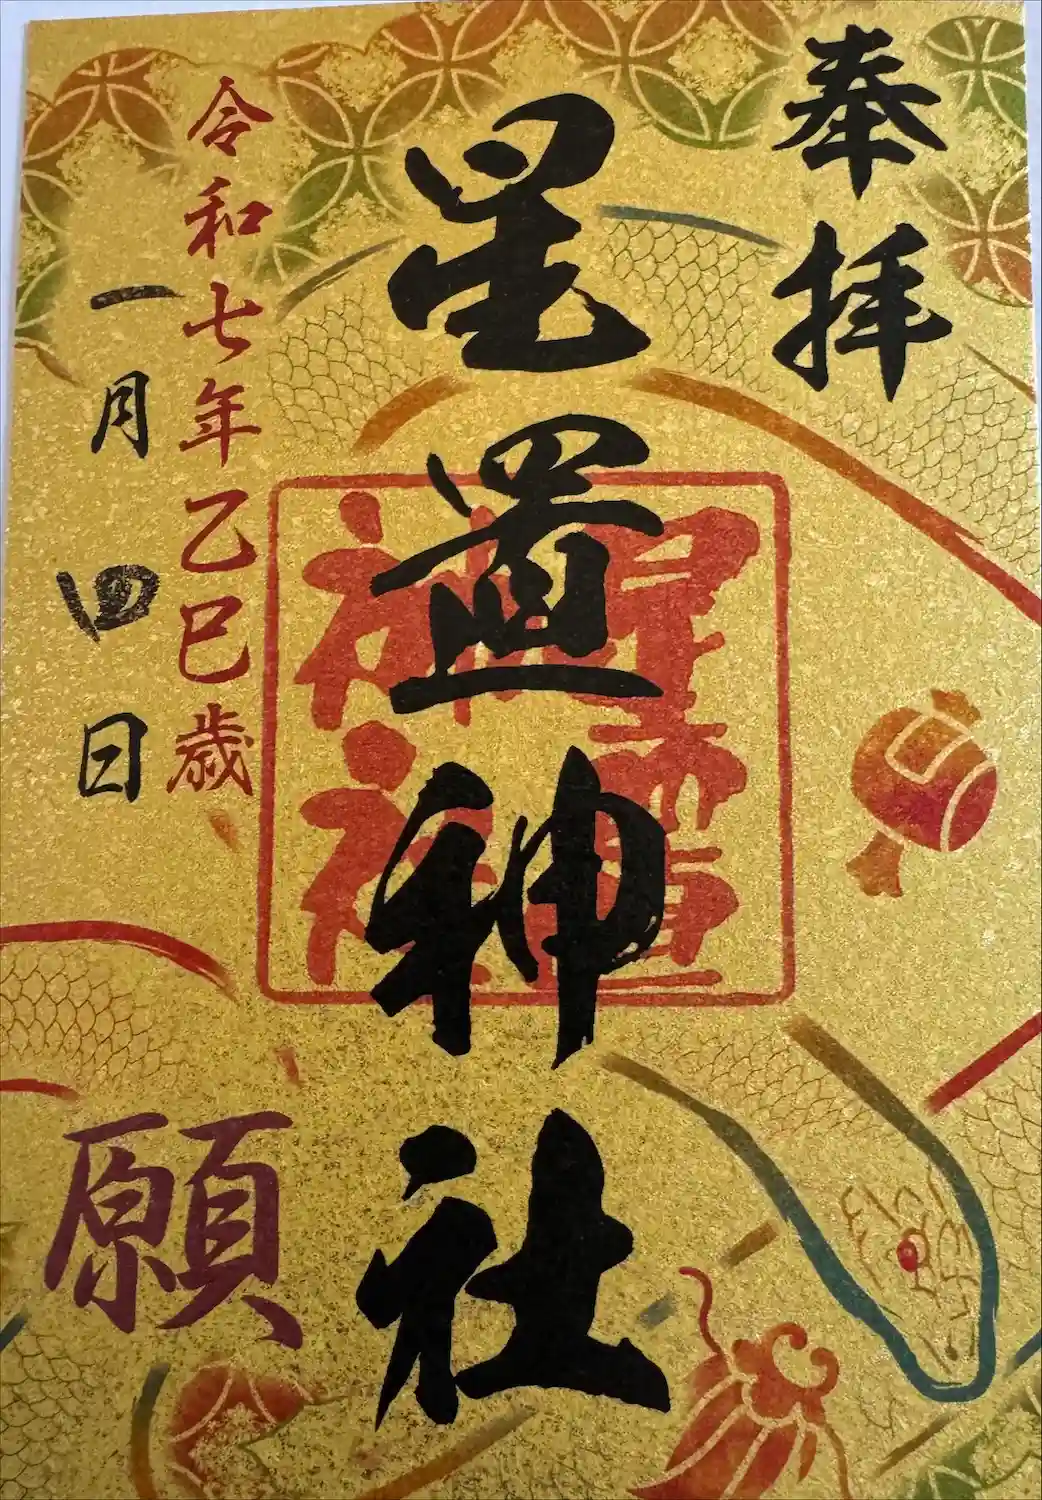 奉拝
星置神社
星置神社
令和七年乙巳歳
一月四日
願